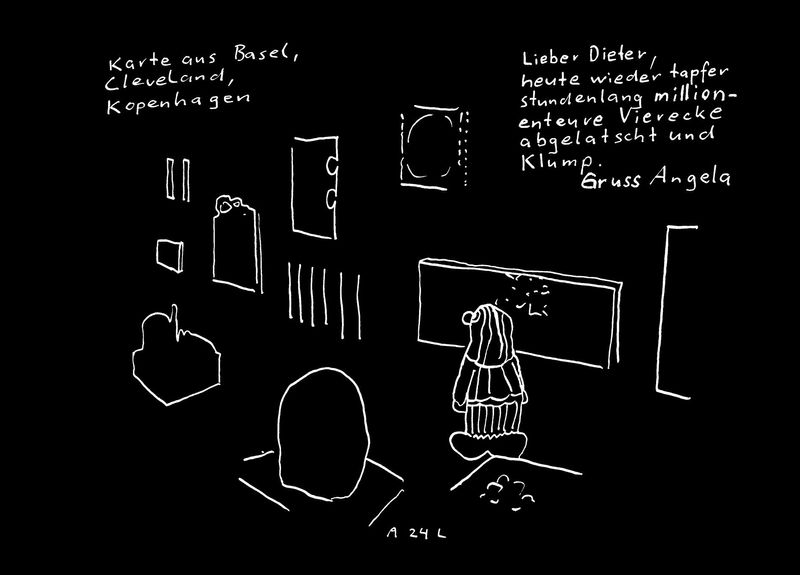 Karte aus Basel,
Cleveland,
Kopenhagen
Lieber Dieter,
heute wieder tapfer
stundenlang million-
enteure Vierecke
abgelatscht und
Klump.
Gruss Angela
A 24 L